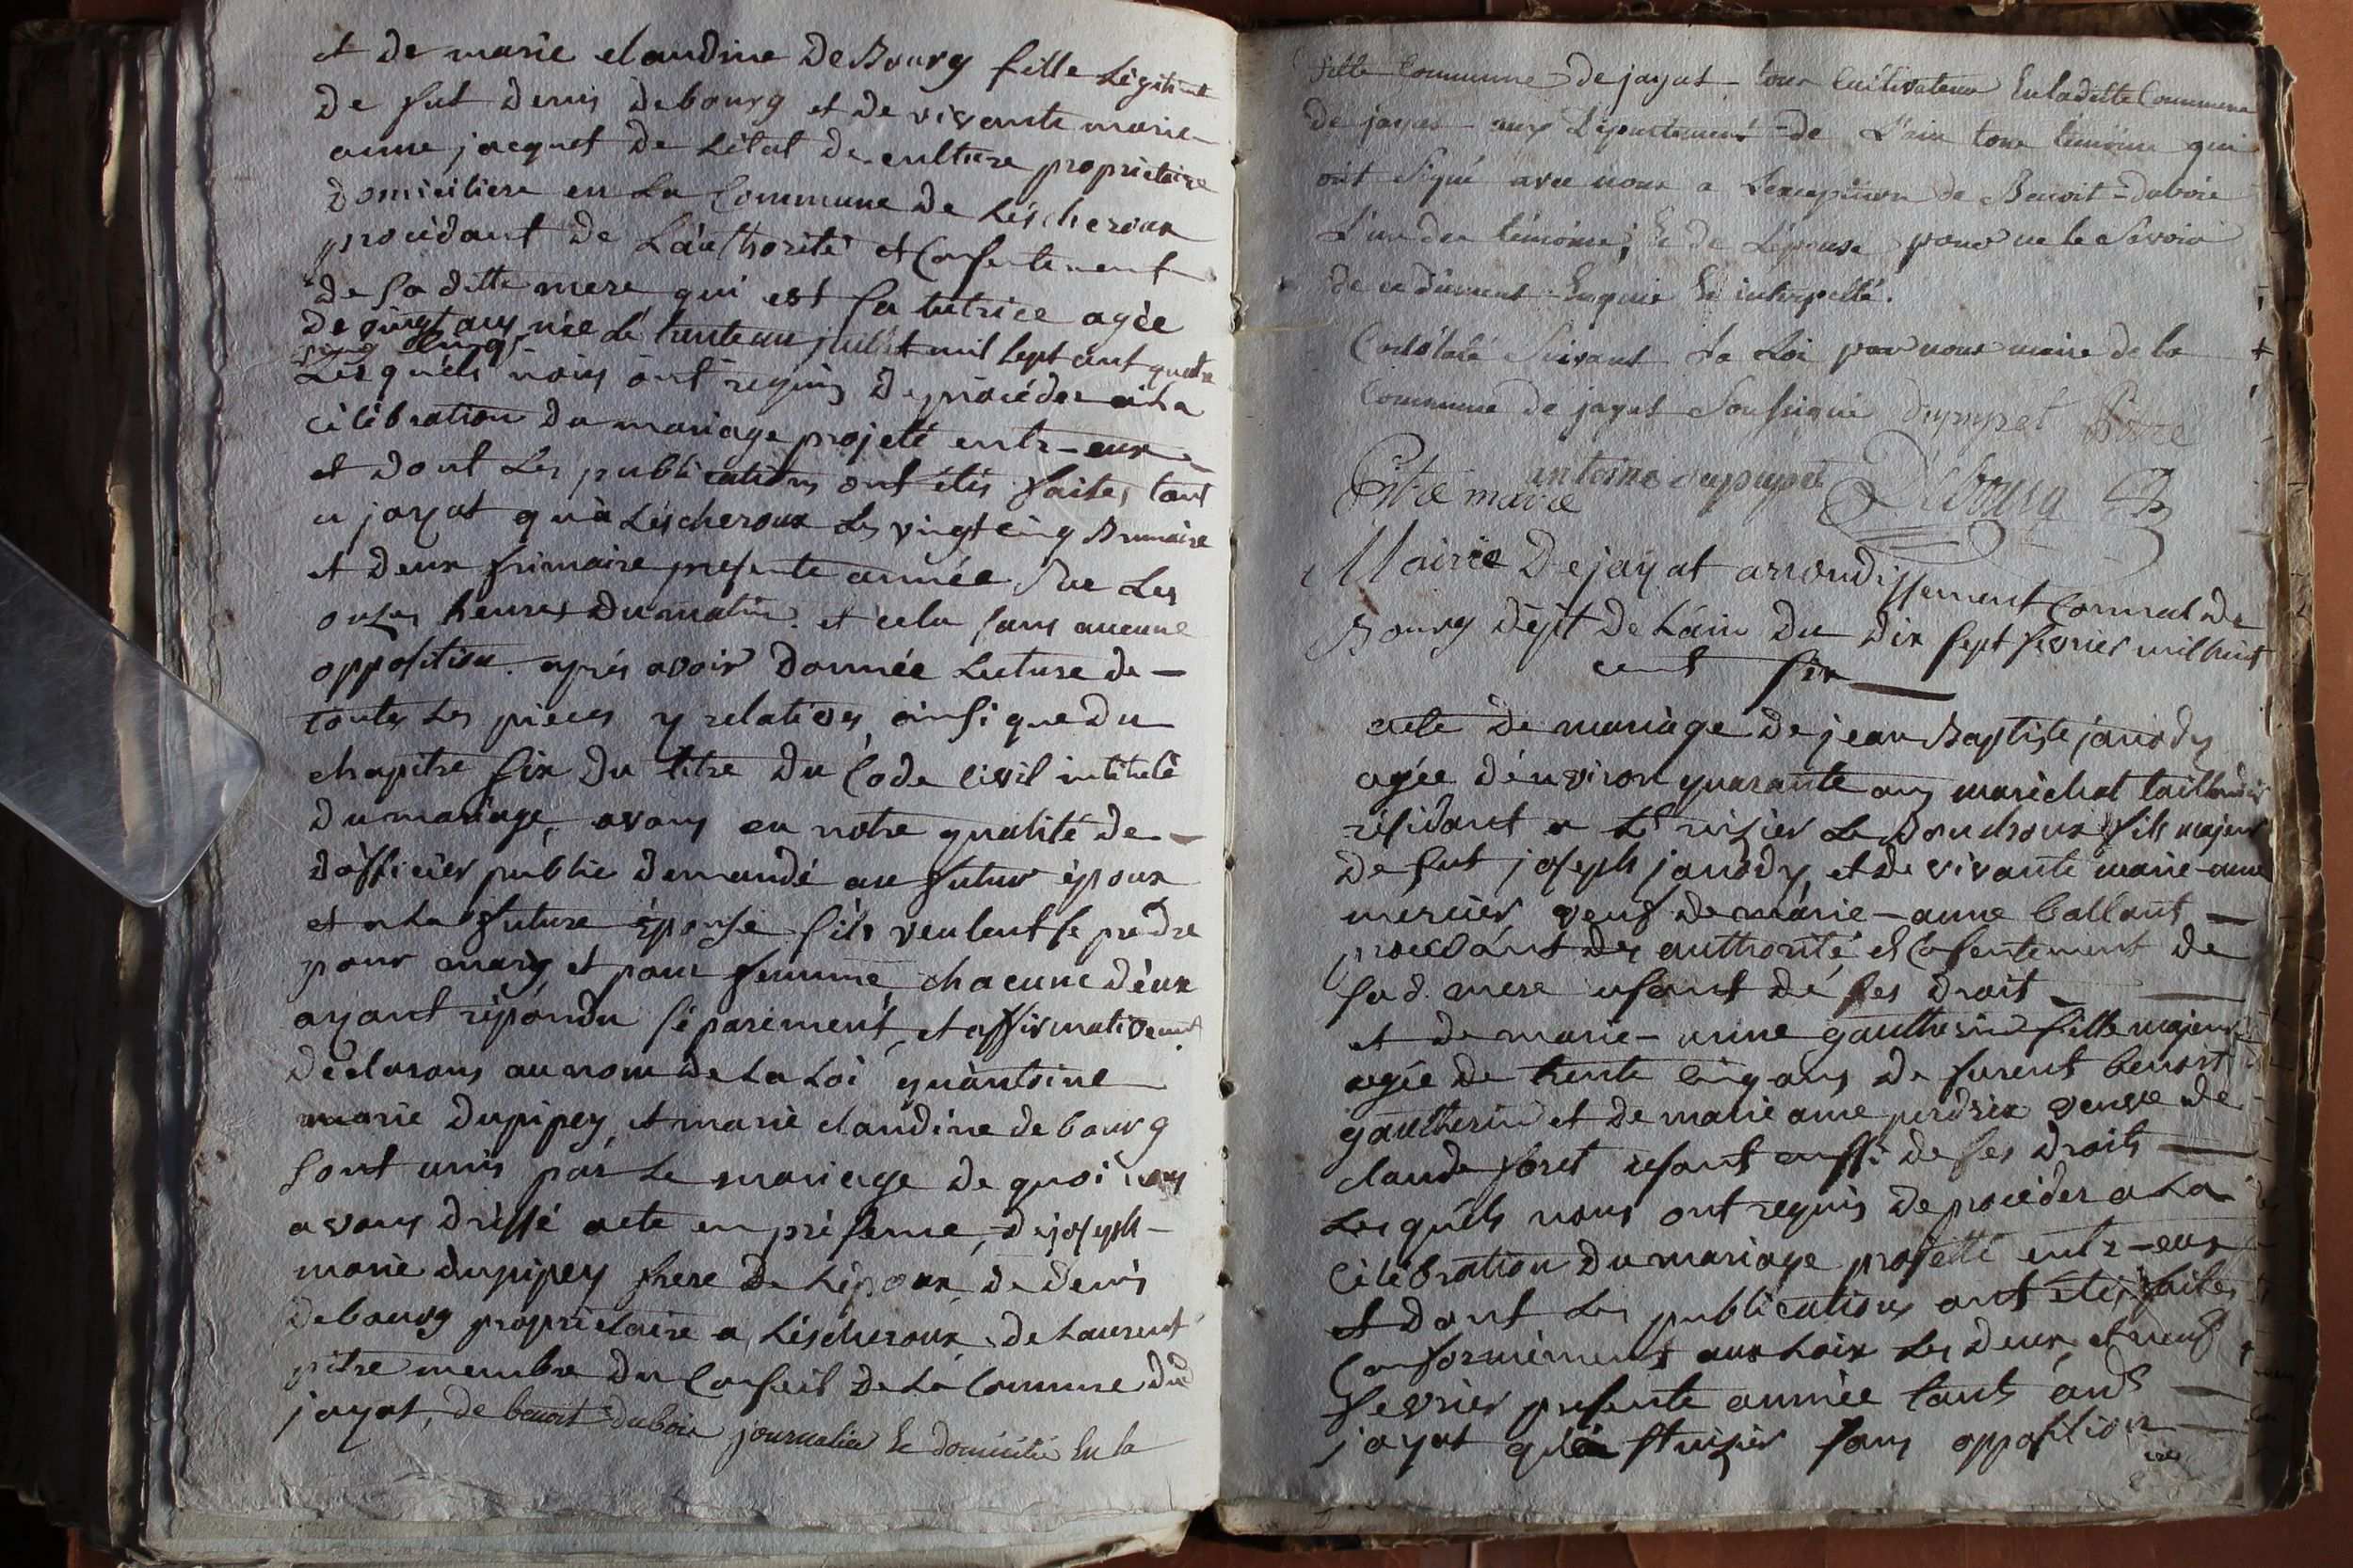 et de marie claudine DeBourg fille Légitime
de fut denis debourg et de vivante marie
anne jacquet de Létat de culture proprietaire
domiciliere en La Commune de Léscheroux
procédant de Lauthorité et Consentement
de sa ditte mere qui est sa tutrice agée
de vingt ans née Lé trente un juillet mil sept cent quatre
vingt cinq
Les quéls nous ont requis de procéder a La
célébration du mariage projeté entr-eux
et dont Les publications ont étés faites tant
a jayat qu'à Léscheroux Les vingt cinq Brumaire
et deux frimaire presente année Sur Les
onzes heures du matin et cela sans aucune
opposition. aprés avoir donnée Lecture de
toutes Les pieces y relatives ainsi que du
chapitre six du titre du Code Civil intitulé
du mariage, avons en notre qualité de
d'officier public demandé au futur époux
et a La future épouse s'ils veulent se prendre
pour mary et pour femme chacune d'eux
ayant répondu séparément, et affirmativement
déclarons au nom de La Loi qu'antoine
marie dupipey et marie claudine debourg
sont unis par Le mariage de quoi nous
avons dréssé acte en présence, de joseph
marie dupipey frere de L'époux de denis
debourg proprietaire a Léscheroux de Laurent
pitre membre du Conseil de La Commune dud
jayat, de benoit dubois journalier & domicilié En la
ditte Commune de jayat tous Cultivateurs En ladette Commune
de jayat aux département de L'ain tous temoins qui
ont Signé avec nous a Lexception de Benoit dubois
L'un des témoins; & de L'épouse pour ne le Savoir
de ce dûment Enquis Et interpellé.
Constaté Suivant La Loi par nous maire de la
Commune de jayat Soussigné dupupet Pitre
antoine dupupet Debourg
Pitre maire
Mairie De jayat arrondissement Communal de
Bourg dépt de L'ain du dix sept fevrier mil huit
cent six
acte de mariage de jean Baptiste janody
agée d'environ quarante ans maréchal taillandier
résidant a St nizier Le Bouchoux fils majeur
de fut joseph janody, et de vivante marie-anne
mercier veuf de marie-anne ballant
procédant de authorité et Consentement de
sa d. mere usant dé ses droit
et de marie-anne gautherin fille majeure
agée de trente cinq ans de furent benoit
gautherin et de marie anne perdrix veuve de
claude foret usant aussi de ses droits
Les quéls nous ont requis de procéder a La
Célébration du mariage projetté entr-eux
et dont Les publications ont étés faites
Conformément aux Loix Les deux et neuf
fevrier presente année tant aud
jayat qu'à St nizier sans opposition